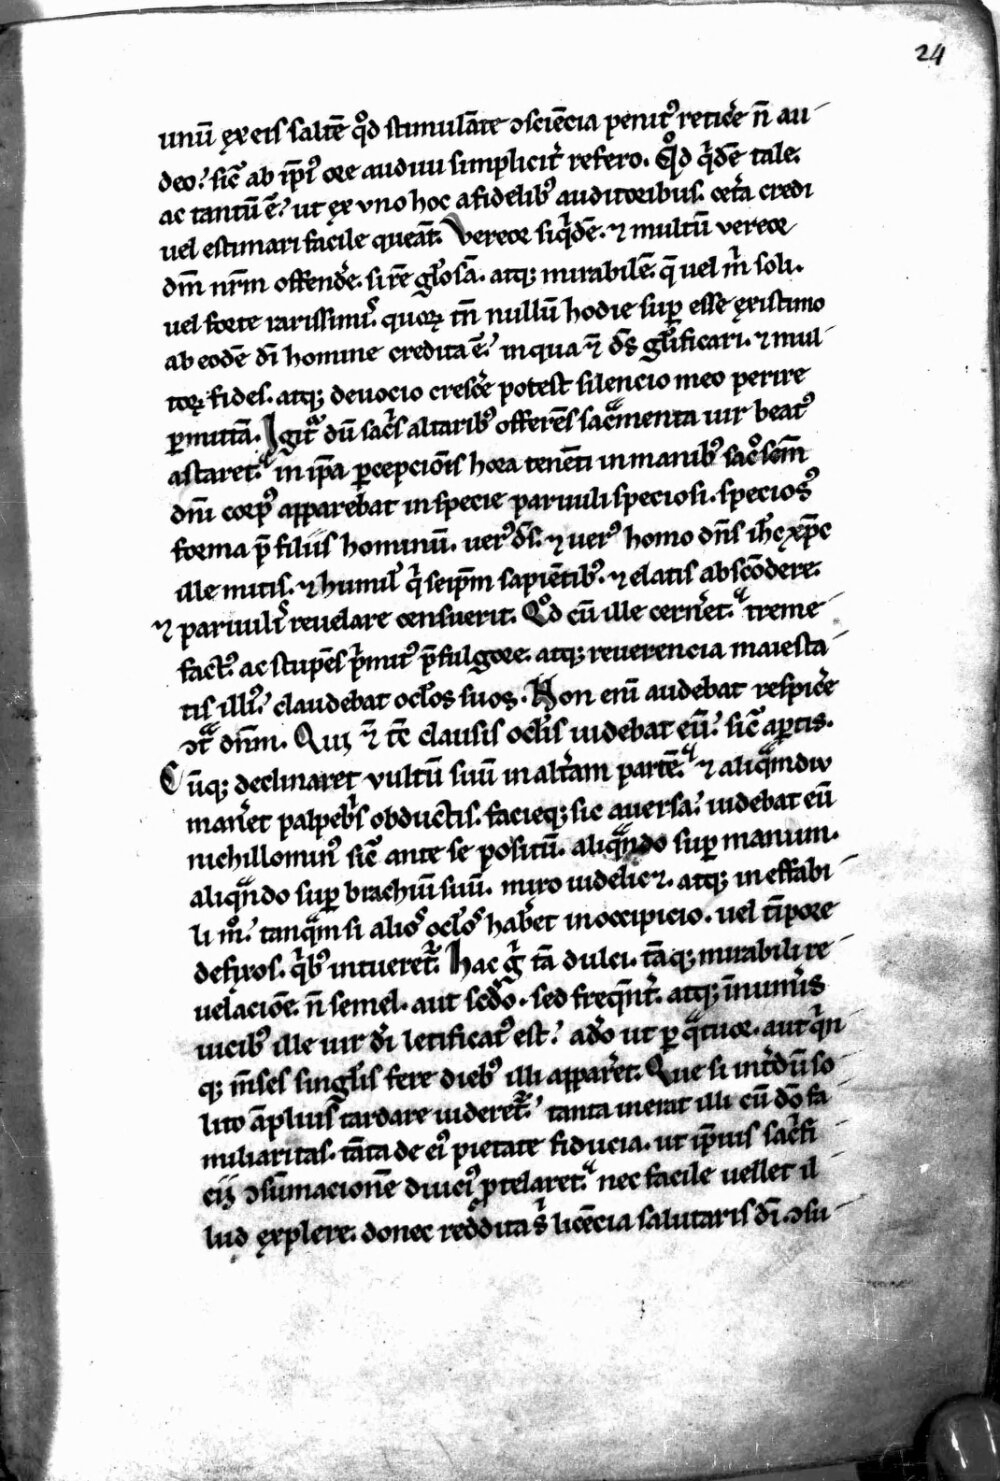 24
unū ex eis saltē qod stimulāte ↄsciēcia penit᷒ reticͤe n̄ au-
deo. sic̄ ab ip̄i᷒ ore audiui simplicit̓ refero. Qod q̓dē tale.
ac tantū ē. ut ex uno hoc a fidelib᷒ auditoribus. cet̓a credi
uel estimari facile queāt. Vereor siq̓dē. ⁊ multū vereor
dn̄m nr̄m offend̓e. si rē gl̓osā. atq; mirabilē. q̄ uel m̓ soli.
uel forte rarissimi᷒. quoꝝ tn̄ nullū hodie suꝑ esse existimo
ab eodē di̅ homine credita ē. in qua ⁊ ds̄ gl̓ificari. ⁊ mul-
toꝝ fides. atq; deuocio cresc̓e potest silencio meo perire
ꝑmittā. Igit̓ dū sac̓s altarib᷒ offerēs sac̓menta uir beat᷒
astaret. in ip̄a ꝑcepciōis hora tenēti in manib᷒ sac̊sc̄m
dn̄i corp᷒ apparebat in specie paruuli speciosi. specios᷒
forma p̄ filiis hominū. uer᷒ ds̄. ⁊ uer᷒ homo dn̄s ih̄c xp̄c
ille mitis. ⁊ humil̓ q̓ seip̄m sapiētib᷒. ⁊ elatis abscōdere.
⁊ paruul̓ reuelare censuerit. Qod cū ille cern̓et. treme-
fact᷒ ac stupēs p̓mit᷒ p̄fulgore. atq; reuerencia maiesta-
tis illi᷒. claudebat ocl̓os suos. Non eni̅ audebat respic̓e
ↄt̓ dn̄m. Qui ⁊ tc̄ clausis ocl̓is uidebat eū. sic̄ aꝑtis.
Cūq; declinaret vultū suū in alt̓am partē. ⁊ aliq̓mdiu
man̓et palpeb̓s obductis. facieq; sic auersa. uidebat eū
nichillomin᷒ sic̄ ante se positū. aliq̓ndo suꝑ manum.
aliq̓ndo suꝑ brachiū suū. miro uidelic⁊. atq; ineffabi-
li mº. tanq̓m si alios ocl̓os hab̓et in occipicio. uel tīpore
defixos. q̓b᷒ intueret̓. Hac g̓ tā dulci. tāq; mirabili re-
uelaciōe. n̄ semel. aut sc̄do. sed freq̄nt̓. atq; īnum̓is
uicib᷒ ille uir di̅ letificat᷒ est. ad̓o ut ꝑ q̓tuor. aut q̓n-
q; m̄ses singl̓is fere dieb᷒ illi appar̓et. Que si int̓dū so-
lito āplius tardare uideret̓. tanta inerat illi cū dō fa-
miliaritas. tāta de ei᷒ pietate fiducia. ut ip̄ius sac̓fi-
cij ↄsūmacionē diuci᷒ ꝓtelaret. nec facile uellet il-
lud explere. donec reddita s̓ licēcia salutaris di̅. ↄsu-